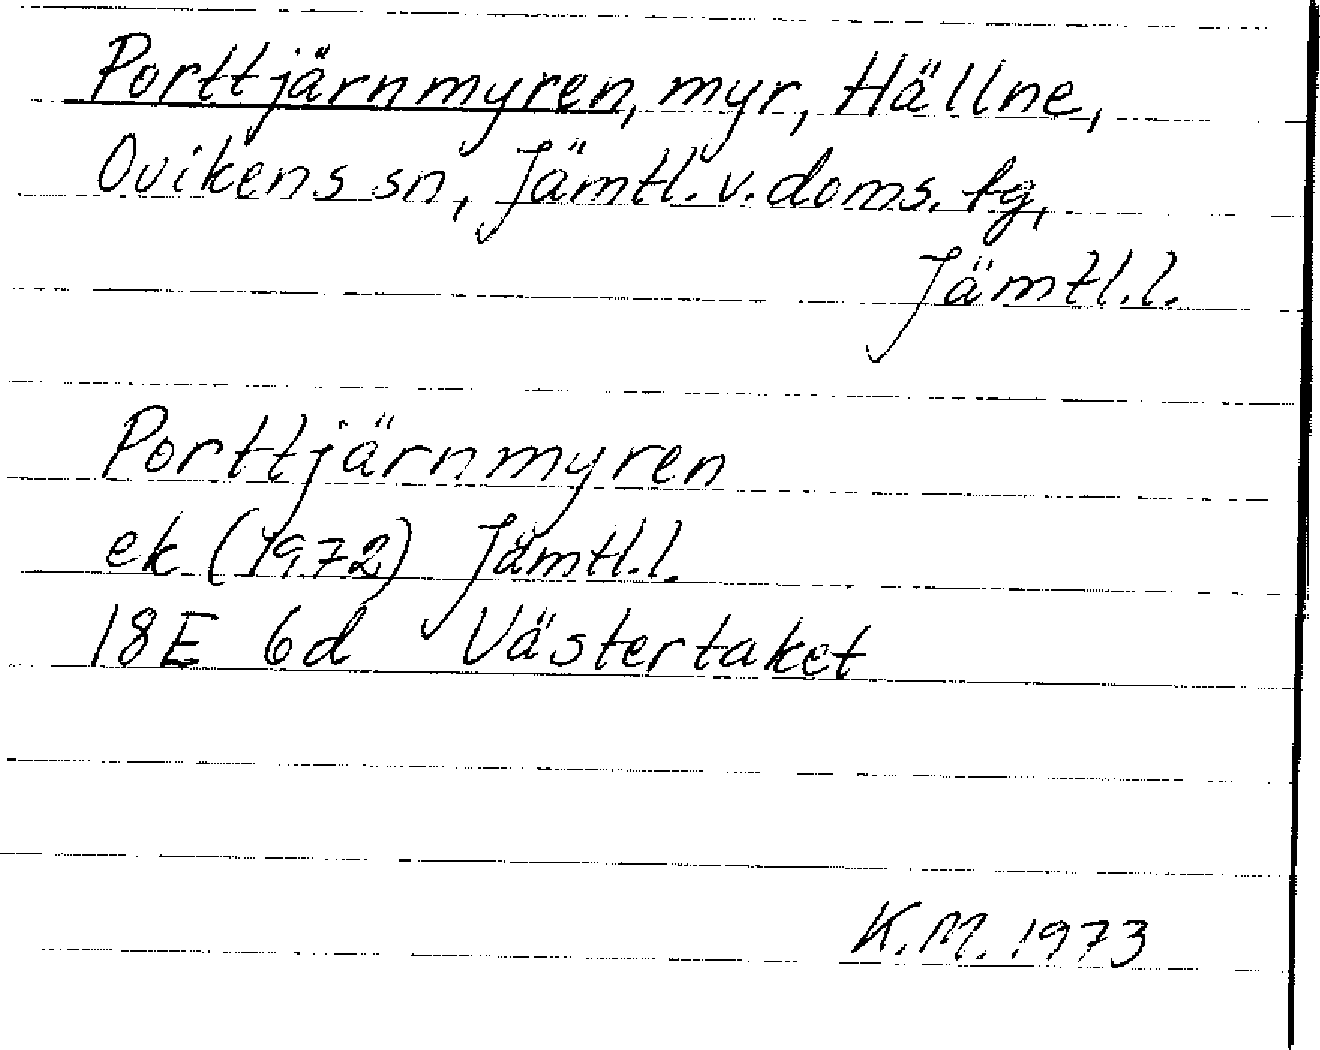 Porttjärnmyren, myr, Hällne,
Ovikens sn, Jämtl. v. doms. tg,
Jämtl. l.
Porttjärnmyren
ek (1972) Jämtl. l.
18E 6d Västertaket
K.M. 1973